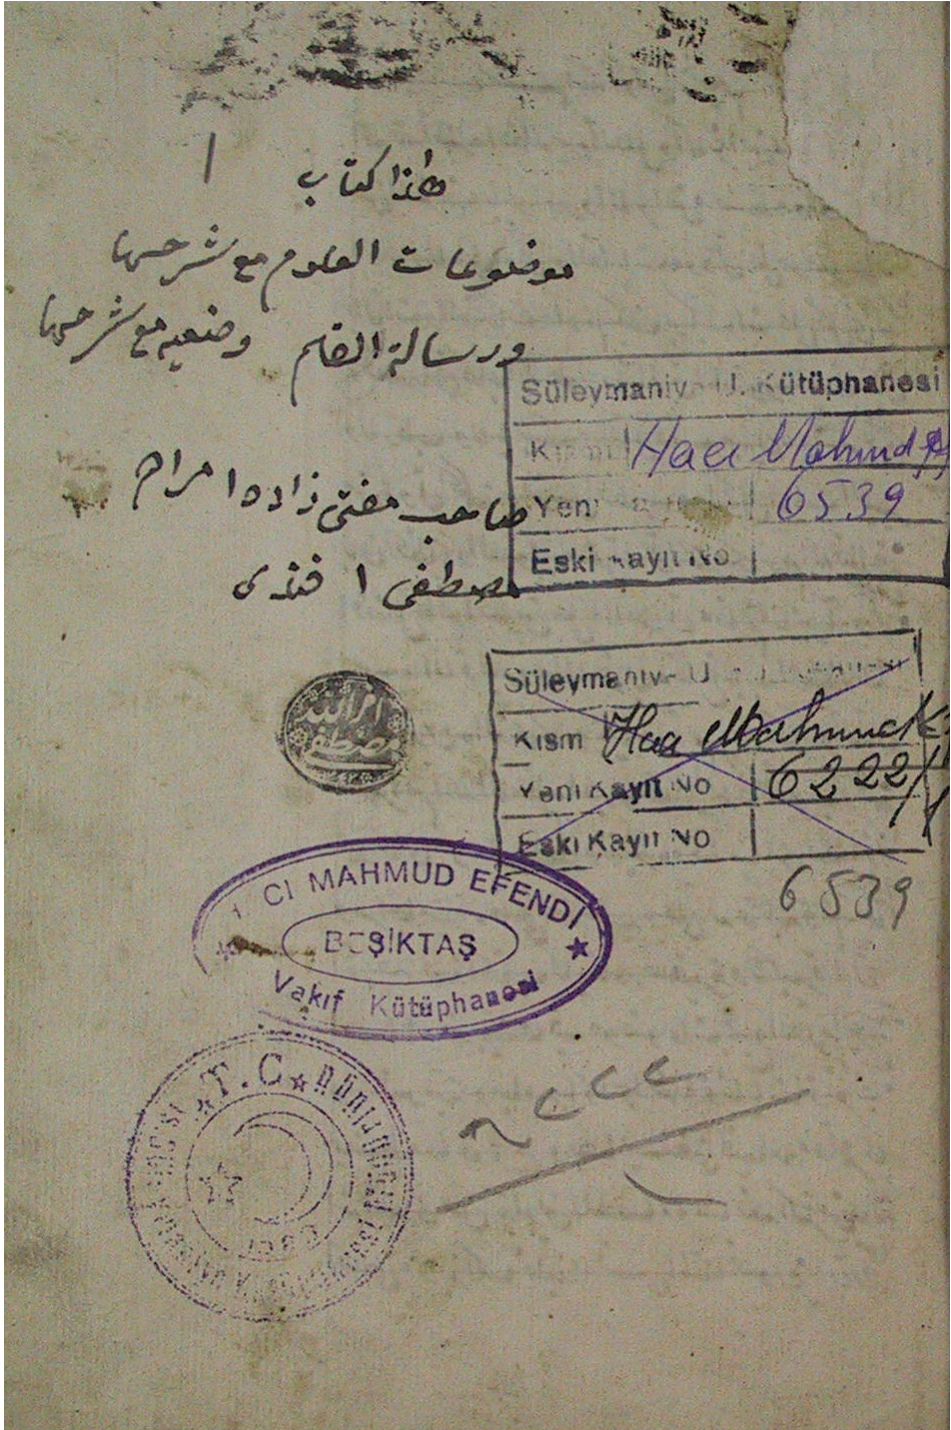 ١
هذا كتاب
موضوعات العلوم مع شرحها
ورسالة القلم وضعيه مع شرحها
صاحب مفتى زاده
مصطفى افندى
Süleymaniy U. Kütüphanesi
Kısmı Hacı Mahmud
Yeni 6539
Eski Kayıt No
Süleymaniy U
Kısm Hacı Mahmud
Yeni Kayıt No 6222/1
Eski Kayıt No
6539
CI MAHMUD EFENDİ
BEŞİKTAŞ
Vakıf Kütüphanesi
T.C.